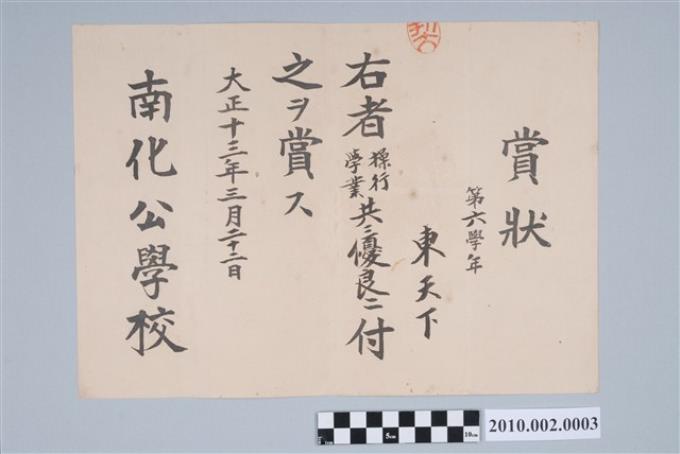 賞狀
第六學年
東天下
右者操行學業共ニ優良ニ付
之ヲ賞ス
大正十三年三月二十二日
南化公學校
5cm
10cm
2010.002.0003